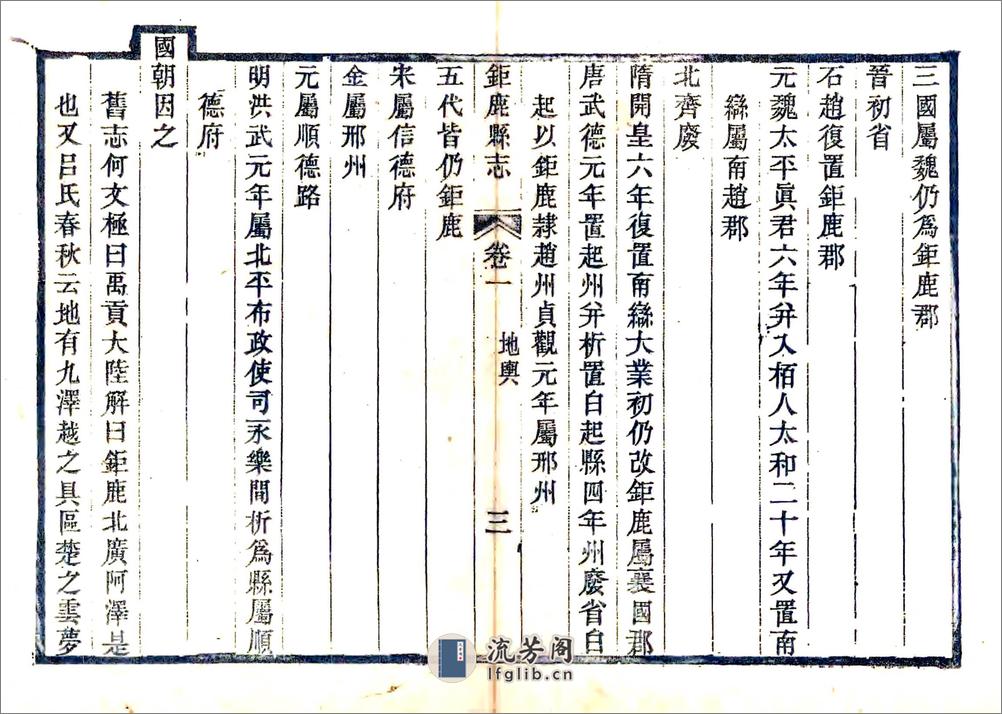 三國屬魏仍爲鉅鹿郡
晉初省
石趙復置鉅鹿郡
元魏太平眞君六年幷入栢人太和二十年又置南
䜌屬南趙郡
北齊廢
隋開皇六年復置南䜌大業初仍改鉅鹿屬襄國郡
唐武德元年置起州幷析置白起縣四年州廢省白
起以鉅鹿隸趙州貞觀元年屬邢州
鉅鹿縣志 卷一 地輿 三
五代皆仍鉅鹿
宋屬信德府
金屬邢州
元屬順德路
明洪武元年屬北平布政使司永樂間析爲縣屬順
德府
國朝因之
舊志何文極曰禹貢大陸解曰鉅鹿北廣阿澤是
也又呂氏春秋云地有九澤越之具區楚之雲夢
流芳阁
lfglib.cn